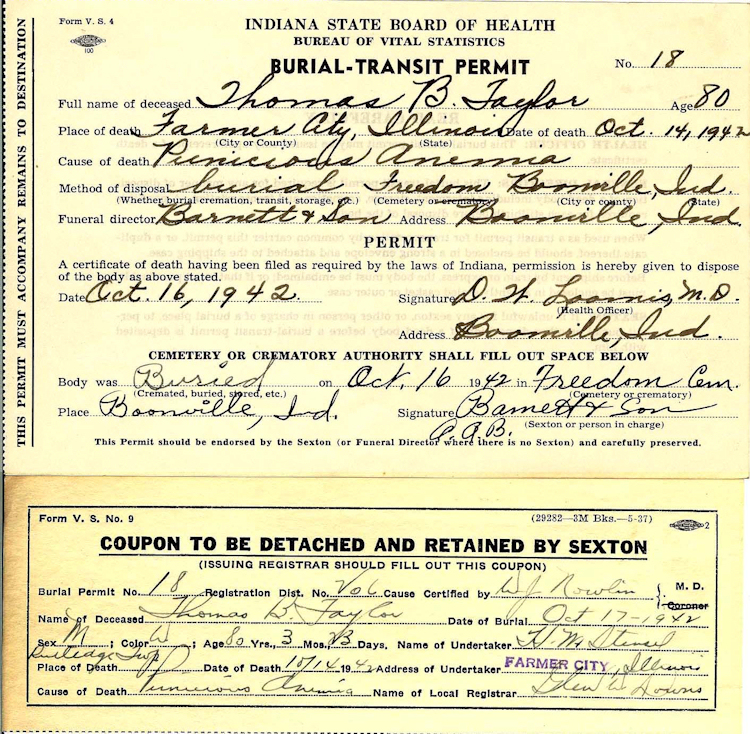 Form V. S. 4
INDIANA STATE BOARD OF HEALTH
BUREAU OF VITAL STATISTICS
100
BURIAL-TRANSIT PERMIT
No. 18
Full name of deceased Thomas B. Taylor Age 80
Place of death Farmer City, Illinois Date of death Oct. 14, 1942
(City or County) (State)
Cause of death Punicious Anemia
Method of disposal burial Freedom Boonville, Ind.
(Whether burial cremation, transit, storage, etc.) (Cemetery or crematory) (City or county) (State)
Funeral director Barnett & Son Address Boonville, Ind.
PERMIT
A certificate of death having been filed as required by the laws of Indiana, permission is hereby given to dispose
of the body as above stated.
Date Oct. 16, 1942. Signature D. W. Loomis, M.D.
(Health Officer)
Address Boonville, Ind.
CEMETERY OR CREMATORY AUTHORITY SHALL FILL OUT SPACE BELOW
Body was Buried on Oct. 16 1942 in Freedom Cem.
(Cremated, buried, stored, etc.) (Cemetery or crematory)
Place Boonville, Ind. Signature Barnett & Son
(Sexton or person in charge)
This Permit should be endorsed by the Sexton (or Funeral Director where there is no Sexton) and carefully preserved.
THIS PERMIT MUST ACCOMPANY REMAINS TO DESTINATION
Form V. S. No. 9
(29282—3M Bks.—5-37)
2
COUPON TO BE DETACHED AND RETAINED BY SEXTON
(ISSUING REGISTRAR SHOULD FILL OUT THIS COUPON)
Burial Permit No. 18 Registration Dist. No. Cause Certified by W J M. D.
Coroner
Name of Deceased Thomas B Taylor Date of Burial Oct 17-1942
Sex M; Color W; Age 80 Yrs., 3 Mos., 23 Days. Name of Undertaker H M
Rutledge Twp
Place of Death Date of Death 10/14 1942 Address of Undertaker FARMER CITY, Illinois
Cause of Death Punicious Anemia Name of Local Registrar Glen W Downs